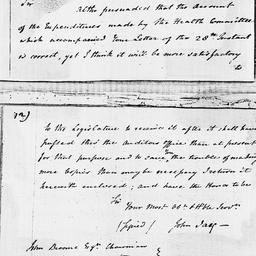 Sir
altho persuaded that the Account
of the Expenditures made by the Health Committee
which accompanied your Letter of the 28th Instant
is correct, yet I think it will be more satisfactory
to
to the Legislature to receive it after it shall have
passed thro the Auditors office than at present
for that purpose and to save the trouble of making
more Copies than may be necessary I return it
herewith enclosed; and have the Honor to be
Sir
Your Most Obt & Hble Servt
(Signed) John Jay
John Broome Esqr Chairman